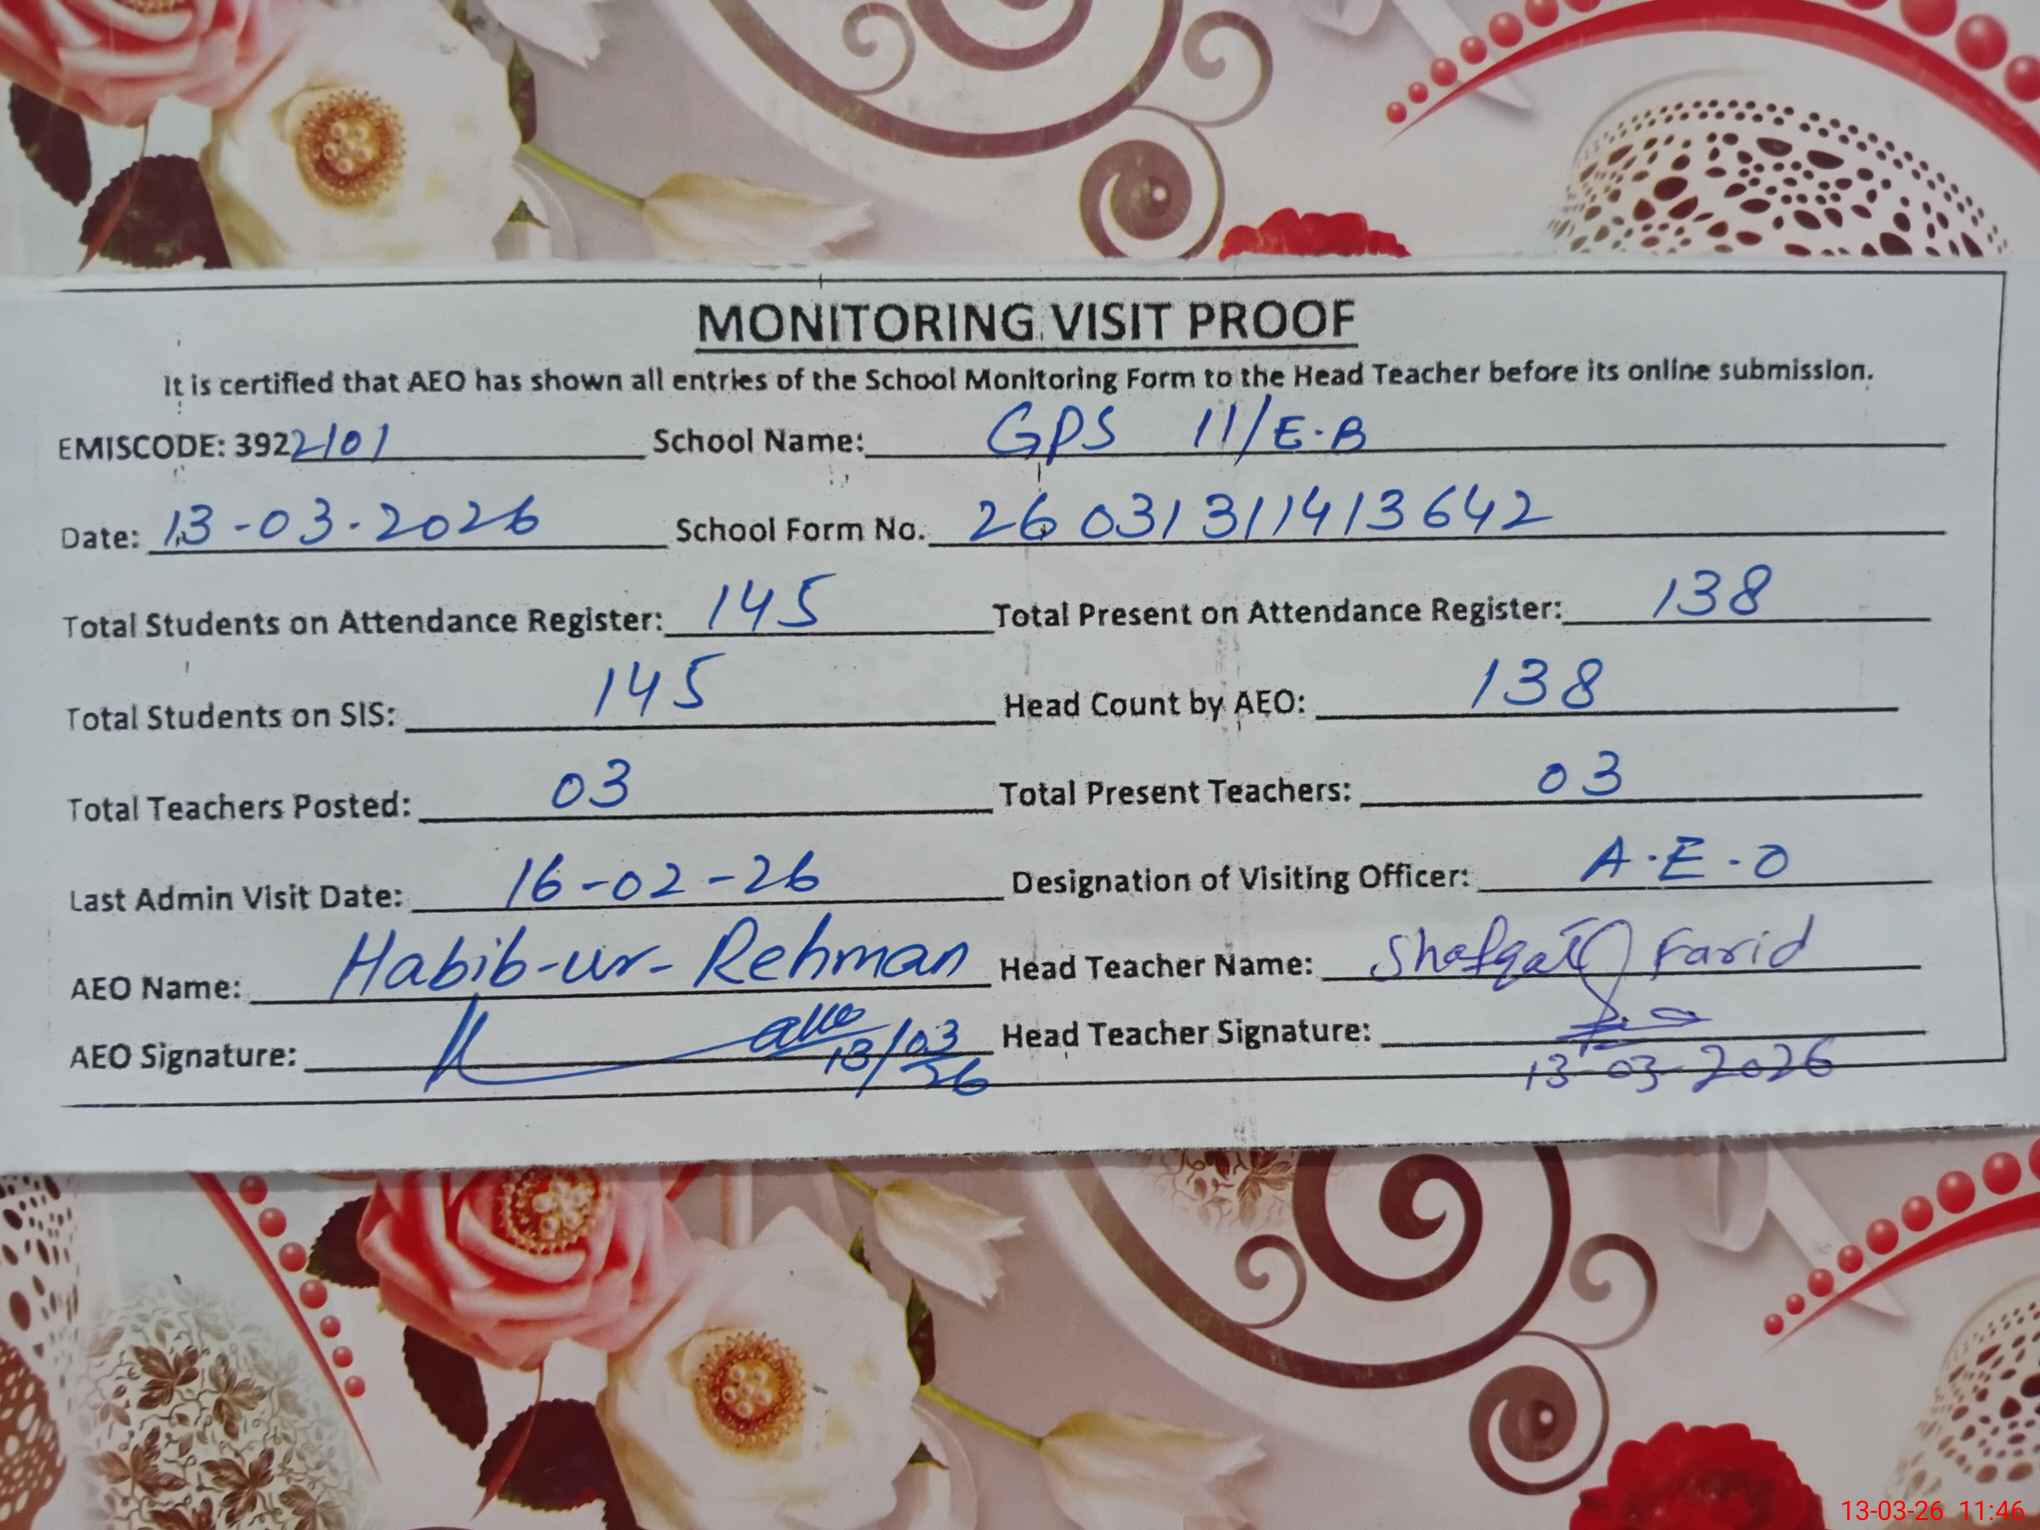 MONITORING VISIT PROOF
It is certified that AEO has shown all entries of the School Monitoring Form to the Head Teacher before its online submission.
EMISCODE: 39222101 School Name: GPS 11/E.B
Date: 13-03-2026 School Form No. 2603131141 3642
Total Students on Attendance Register: 145 Total Present on Attendance Register: 138
Total Students on SIS: 145 Head Count by AEO: 138
Total Teachers Posted: 03 Total Present Teachers: 03
Last Admin Visit Date: 16-02-26 Designation of Visiting Officer: A.E.O
AEO Name: Habib-ur-Rehman Head Teacher Name: Shafqat Farid
AEO Signature: 13/03 26 Head Teacher Signature:
13-03-2026
13-03-26 11:46